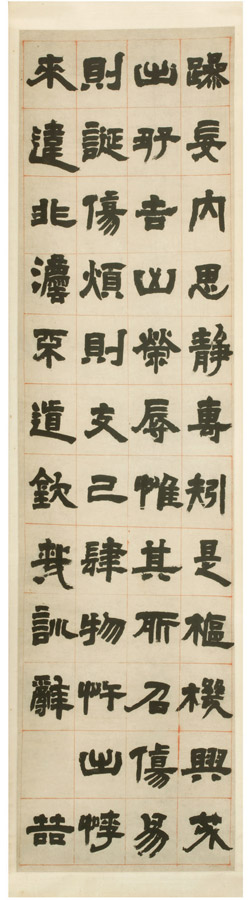 躁妄内思静專矧是樞機興戎
出好吉凶榮辱惟其所召傷易
則誕傷煩則支己肆物忤出悖
來違非灋不道欽哉訓辭 喆